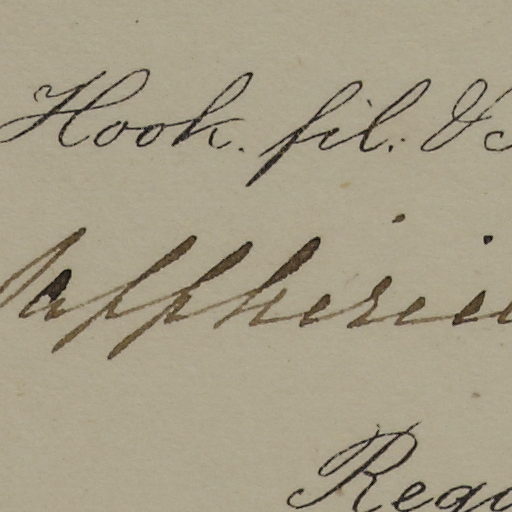 Hook. fil. &
sapphirin
Rega